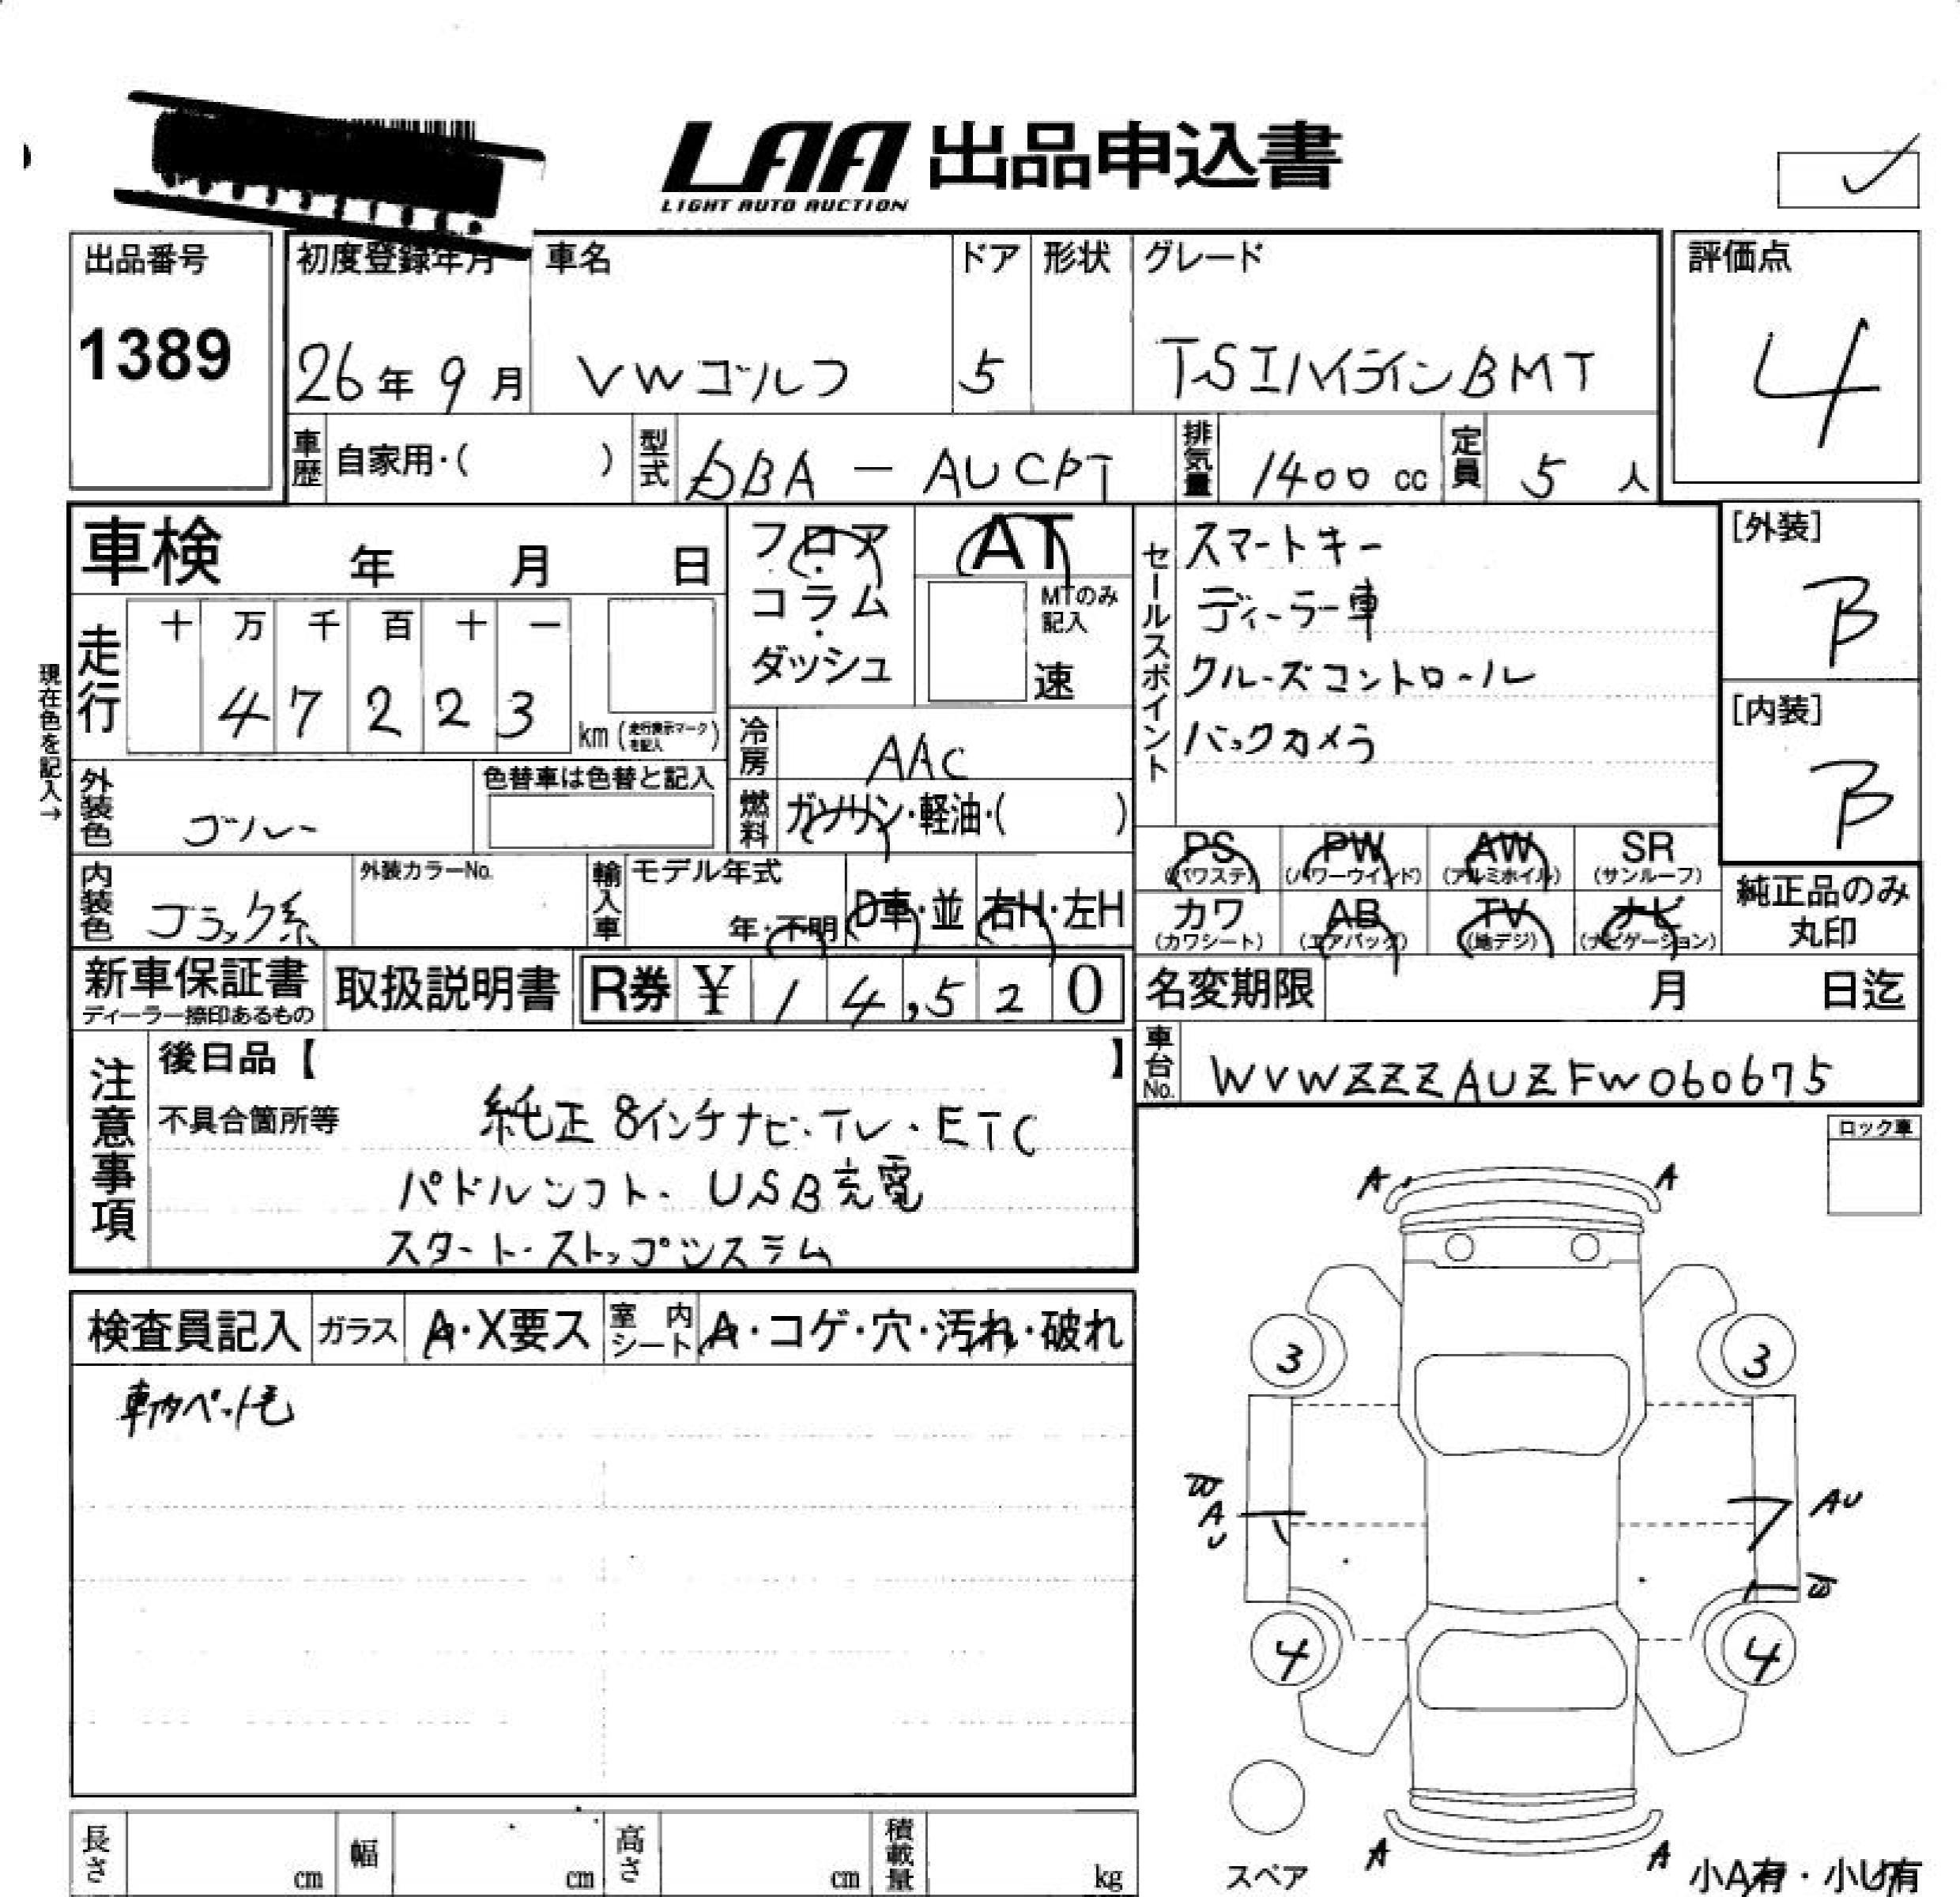 LAA 出品申込書
LIGHT AUTO AUCTION
出品番号
1389
初度登録年月
26年 9月
車名
VWゴルフ
ドア
5
形状
グレード
TSIハイラインBMT
評価点
4
車歴 自家用・( )
型式 DBA - AUCPT
排気量 1400 cc
定員 5 人
車検 年 月 日
フロア・コラム・ダッシュ
AT
MTのみ記入
速
セールスポイント
スマートキー
ディーラー車
クルーズコントロール
バックカメラ
[外装]
B
[内装]
B
現在色を記入→
走行
十 万 千 百 十 一
4 7 2 2 3
km (走行表示マークを記入)
冷房 AAC
燃料 ガソリン・軽油・( )
外装色
色替車は色替と記入
内装色 ブラック系
外装カラーNo.
輸入車
モデル年式
年・不明
D車・並
右H・左H
PS (パワステ)
PW (パワーウインド)
AW (アルミホイル)
SR (サンルーフ)
カワ (カワシート)
AB (エアバッグ)
TV (地デジ)
ナビ (ナビゲーション)
純正品のみ
丸印
新車保証書
ディーラー捺印あるもの
取扱説明書
R券 ¥ 1 4,5 2 0
名変期限 月 日迄
車台No. WVWZZZAUZFW060675
注意事項
後日品【 】
不具合箇所等
純正 8インチナビ・TV・ETC
パドルシフト・USB充電
スタート・ストップシステム
ロック車
検査員記入
ガラス A・X要ス
室内シート A・コゲ・穴・汚れ・破れ
車内ペット毛
A A
3 3
W
A
U
AU
W
4 4
A A
スペア
小A有・小U有
長さ cm
幅 cm
高さ cm
積載量 kg